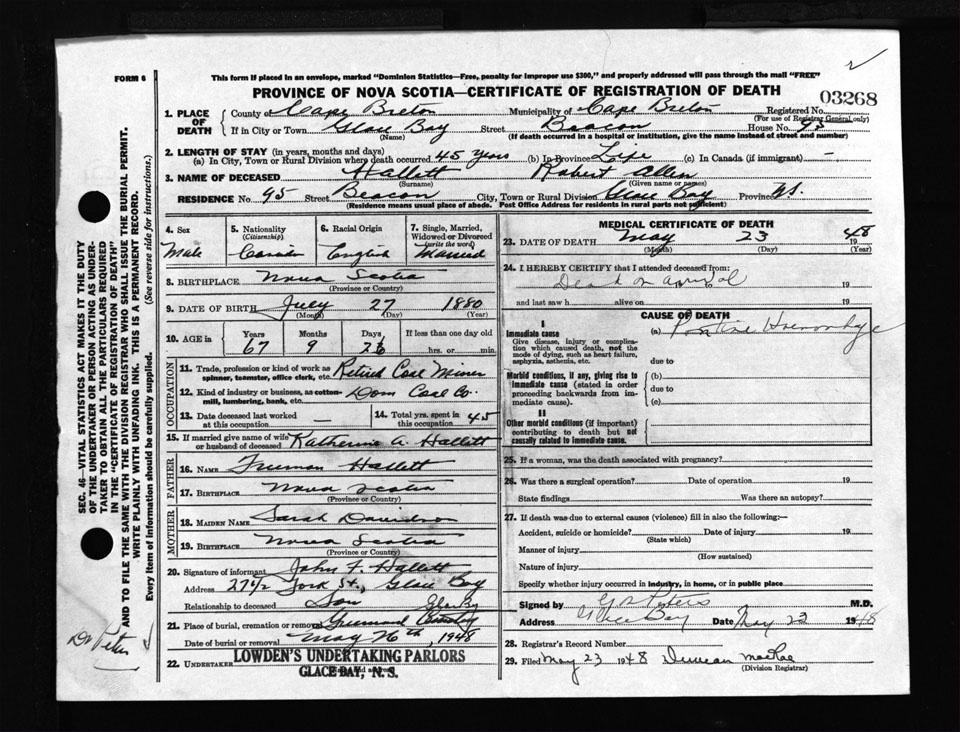 FORM 6
This form if placed in an envelope, marked "Dominion Statistics—Free, penalty for improper use $300," and properly addressed will pass through the mail "FREE"
PROVINCE OF NOVA SCOTIA—CERTIFICATE OF REGISTRATION OF DEATH
03268
1. PLACE OF DEATH County of Cape Breton Municipality of Cape Breton Registered No.
(For use of Registrar General only)
If in City or Town Glace Bay Street Beacon House No. 95
(Name) (If death occurred in a hospital or institution, give the name instead of street and number)
2. LENGTH OF STAY (in years, months and days)
(a) In City, Town or Rural Division where death occurred 45 years (b) In Province Life (c) In Canada (if immigrant) —
3. NAME OF DECEASED Hallett Robert Allen
(Surname) (Given name or names)
RESIDENCE No. 95 Street Beacon City, Town or Rural Division Glace Bay Province N.S.
(Residence means usual place of abode. Post Office Address for residents in rural parts not sufficient)
4. Sex Male
5. Nationality (Citizenship)
6. Racial Origin English
7. Single, Married, Widowed or Divorced (write the word) Married
8. BIRTHPLACE Nova Scotia
(Province or Country)
9. DATE OF BIRTH July 27 1880
(Month) (Day) (Year)
10. AGE in Years Months Days If less than one day old
67 9 26 hrs. or min.
OCCUPATION
11. Trade, profession or kind of work as spinner, teamster, office clerk, etc. Retired Coal Miner
12. Kind of industry or business, as cotton-mill, lumbering, bank, etc. Dom Coal Co.
13. Date deceased last worked at this occupation —
14. Total yrs. spent in this occupation 45
15. If married give name of wife or husband of deceased Katherine A. Hallett
FATHER
16. NAME Freeman Hallett
17. BIRTHPLACE Nova Scotia
(Province or Country)
MOTHER
18. MAIDEN NAME Sarah Davidson
19. BIRTHPLACE Nova Scotia
(Province or Country)
20. Signature of informant John F. Hallett
Address 27½ York St., Glace Bay
Relationship to deceased Son
21. Place of burial, cremation or removal Greenwood
Date of burial or removal May 26th, 1948
22. UNDERTAKER LOWDEN'S UNDERTAKING PARLORS
GLACE BAY, N. S.
MEDICAL CERTIFICATE OF DEATH
23. DATE OF DEATH May 23 1948
(Month) (Day) (Year)
24. I HEREBY CERTIFY that I attended deceased from:
Dead on arrival 19
and last saw h alive on 19
CAUSE OF DEATH
I
Immediate cause
Give disease, injury or complication which caused death, not the mode of dying, such as heart failure, asphyxia, asthenia, etc.
(a) Pontine Haemorrhage
due to
Morbid conditions, if any, giving rise to immediate cause (stated in order proceeding backwards from immediate cause).
(b)
due to
(c)
II
Other morbid conditions (if important) contributing to death but not causally related to immediate cause.
25. If a woman, was the death associated with pregnancy?
26. Was there a surgical operation? Date of operation 19
State findings Was there an autopsy?
27. If death was due to external causes (violence) fill in also the following:—
Accident, suicide or homicide? Date of injury 19
(State which)
Manner of injury
(How sustained)
Nature of injury
Specify whether injury occurred in industry, in home, or in public place
Signed by Peters M.D.
Address Glace Bay Date May 23 1948
28. Registrar's Record Number
29. Filed May 23 1948 Duncan MacRae
(Division Registrar)
SEC. 46—VITAL STATISTICS ACT MAKES IT THE DUTY
OF THE UNDERTAKER OR PERSON ACTING AS UNDERTAKER TO OBTAIN ALL THE PARTICULARS REQUIRED
IN THE "CERTIFICATE OF REGISTRATION OF DEATH"
AND TO FILE THE SAME WITH THE DIVISION REGISTRAR WHO SHALL ISSUE THE BURIAL PERMIT.
WRITE PLAINLY WITH UNFADING INK. THIS IS A PERMANENT RECORD.
Every item of information should be carefully supplied. (See reverse side for instructions.)
Dr Peters